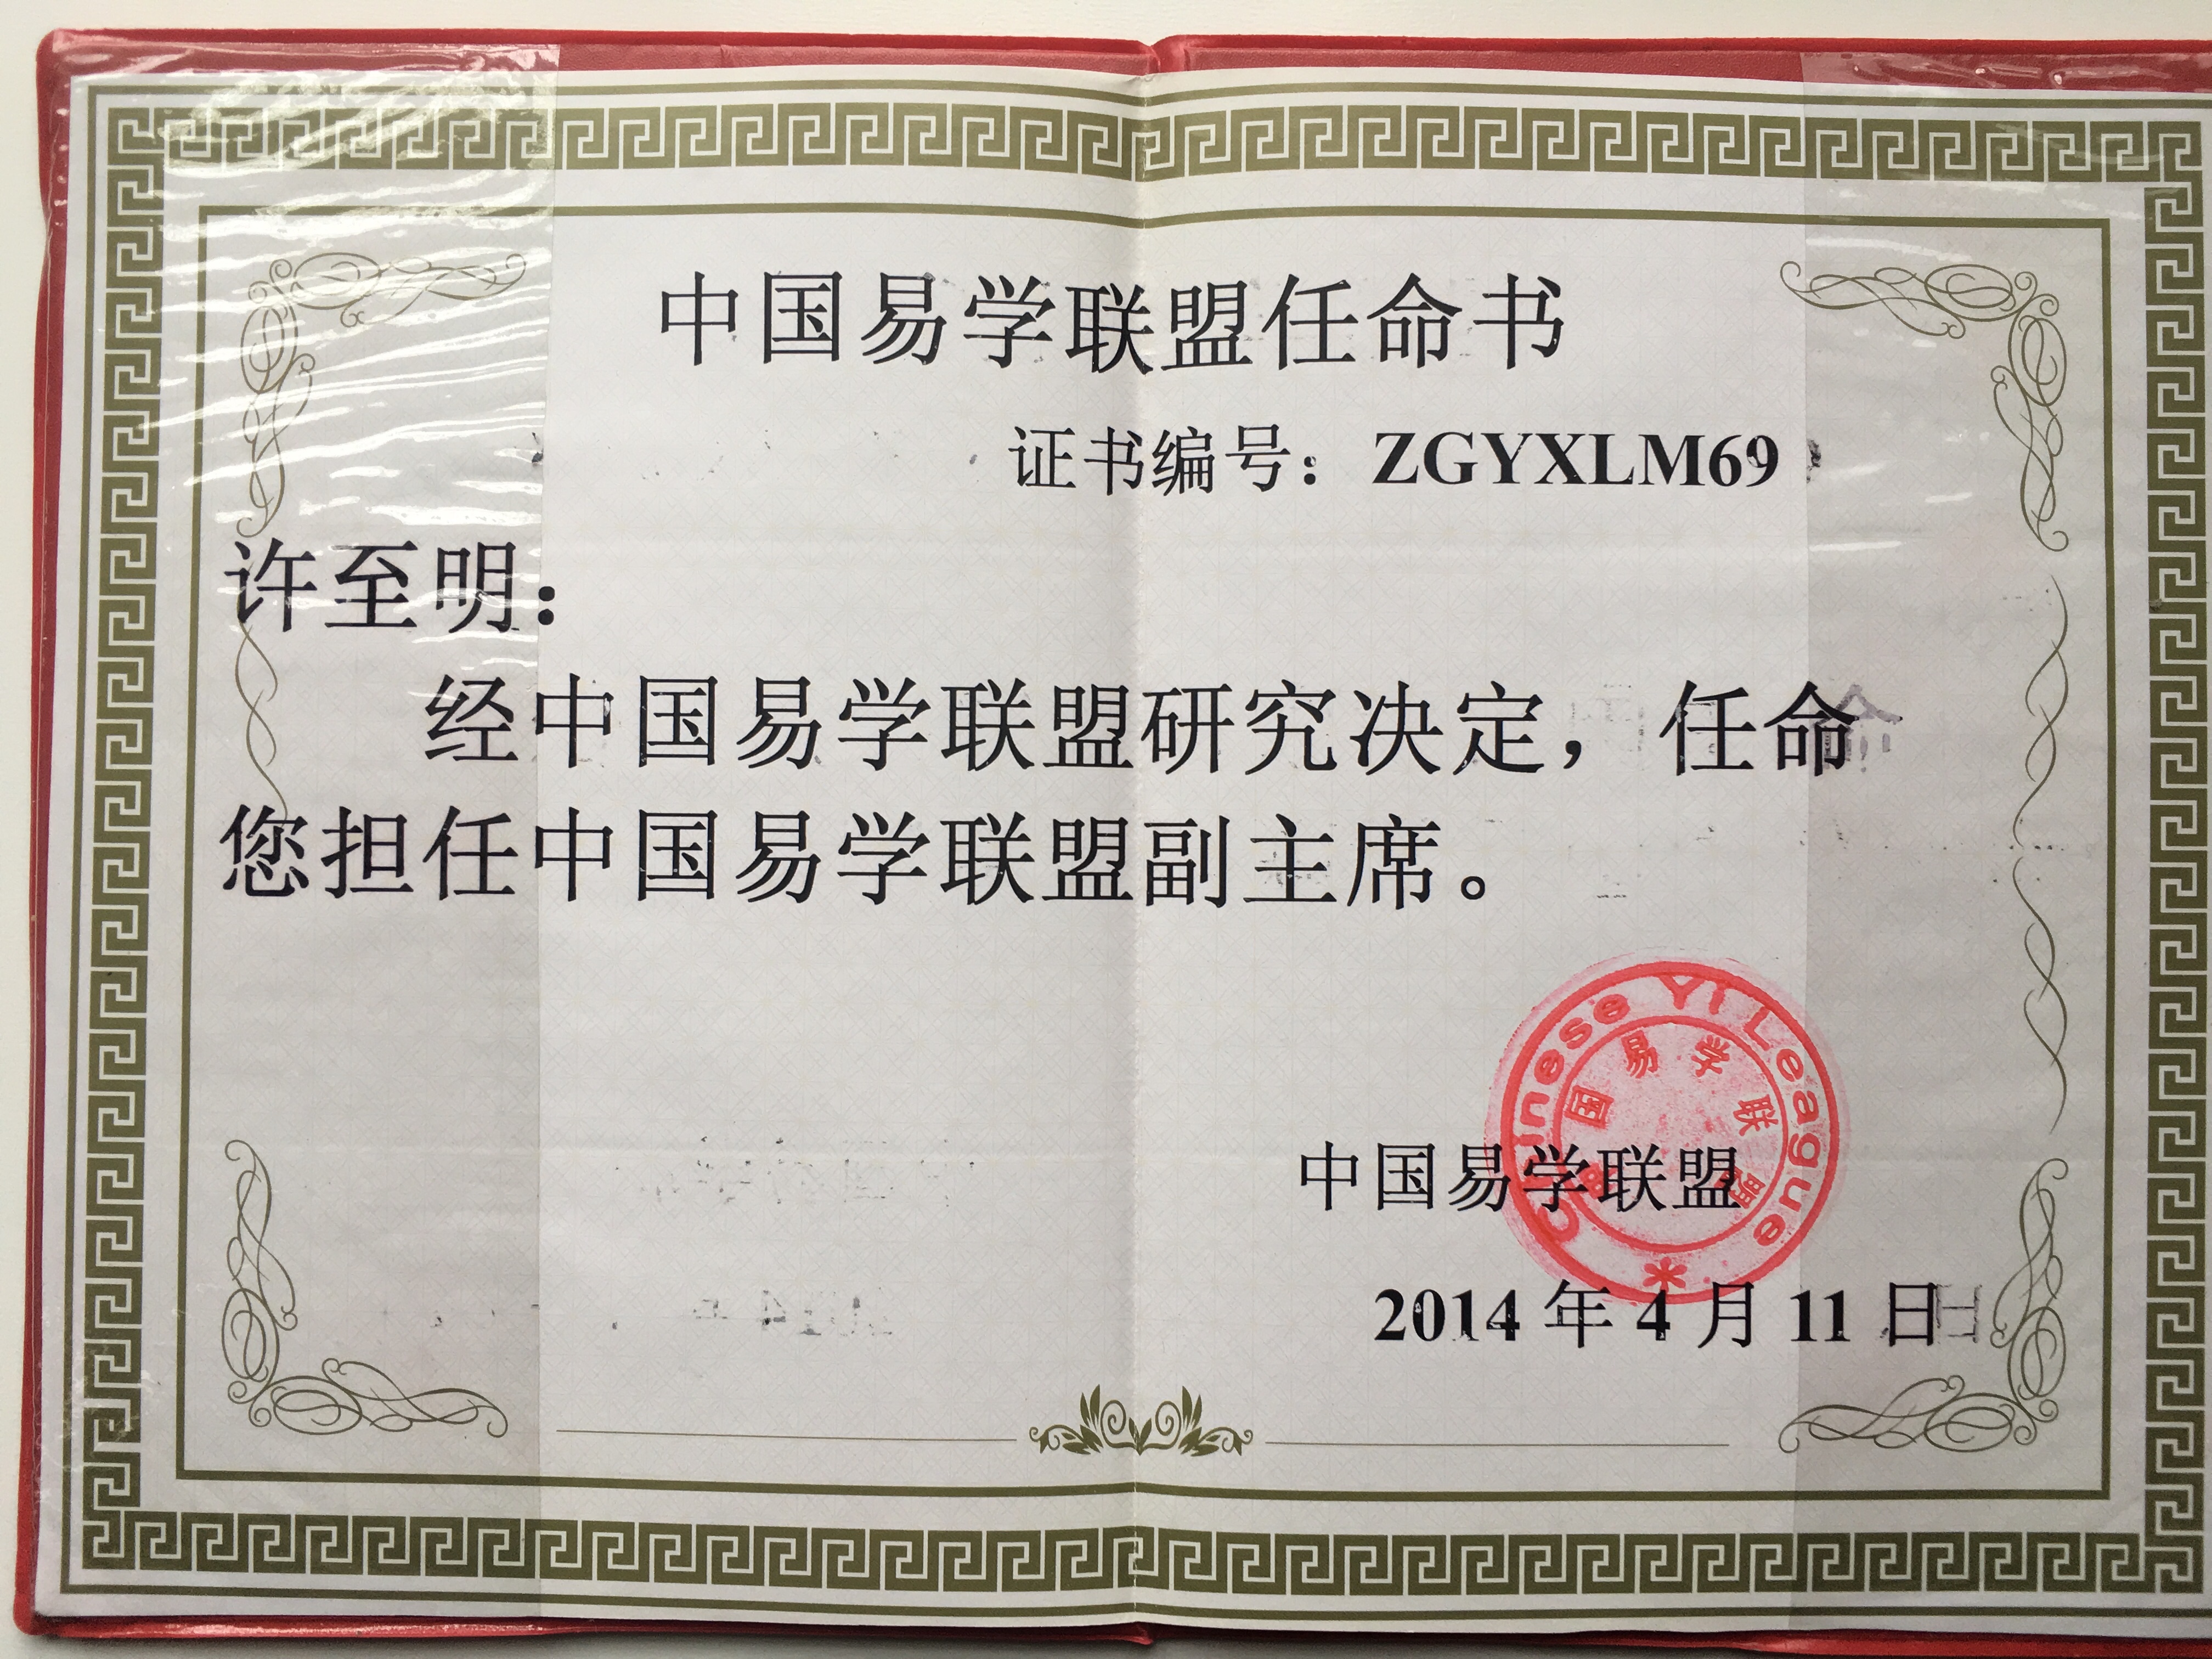 中国易学联盟任命书
证书编号：ZGYXLM69
许至明：
经中国易学联盟研究决定，任命
您担任中国易学联盟副主席。
Chinese Yi League
中国易学联盟
中国易学联盟
2014 年 4 月 11 日